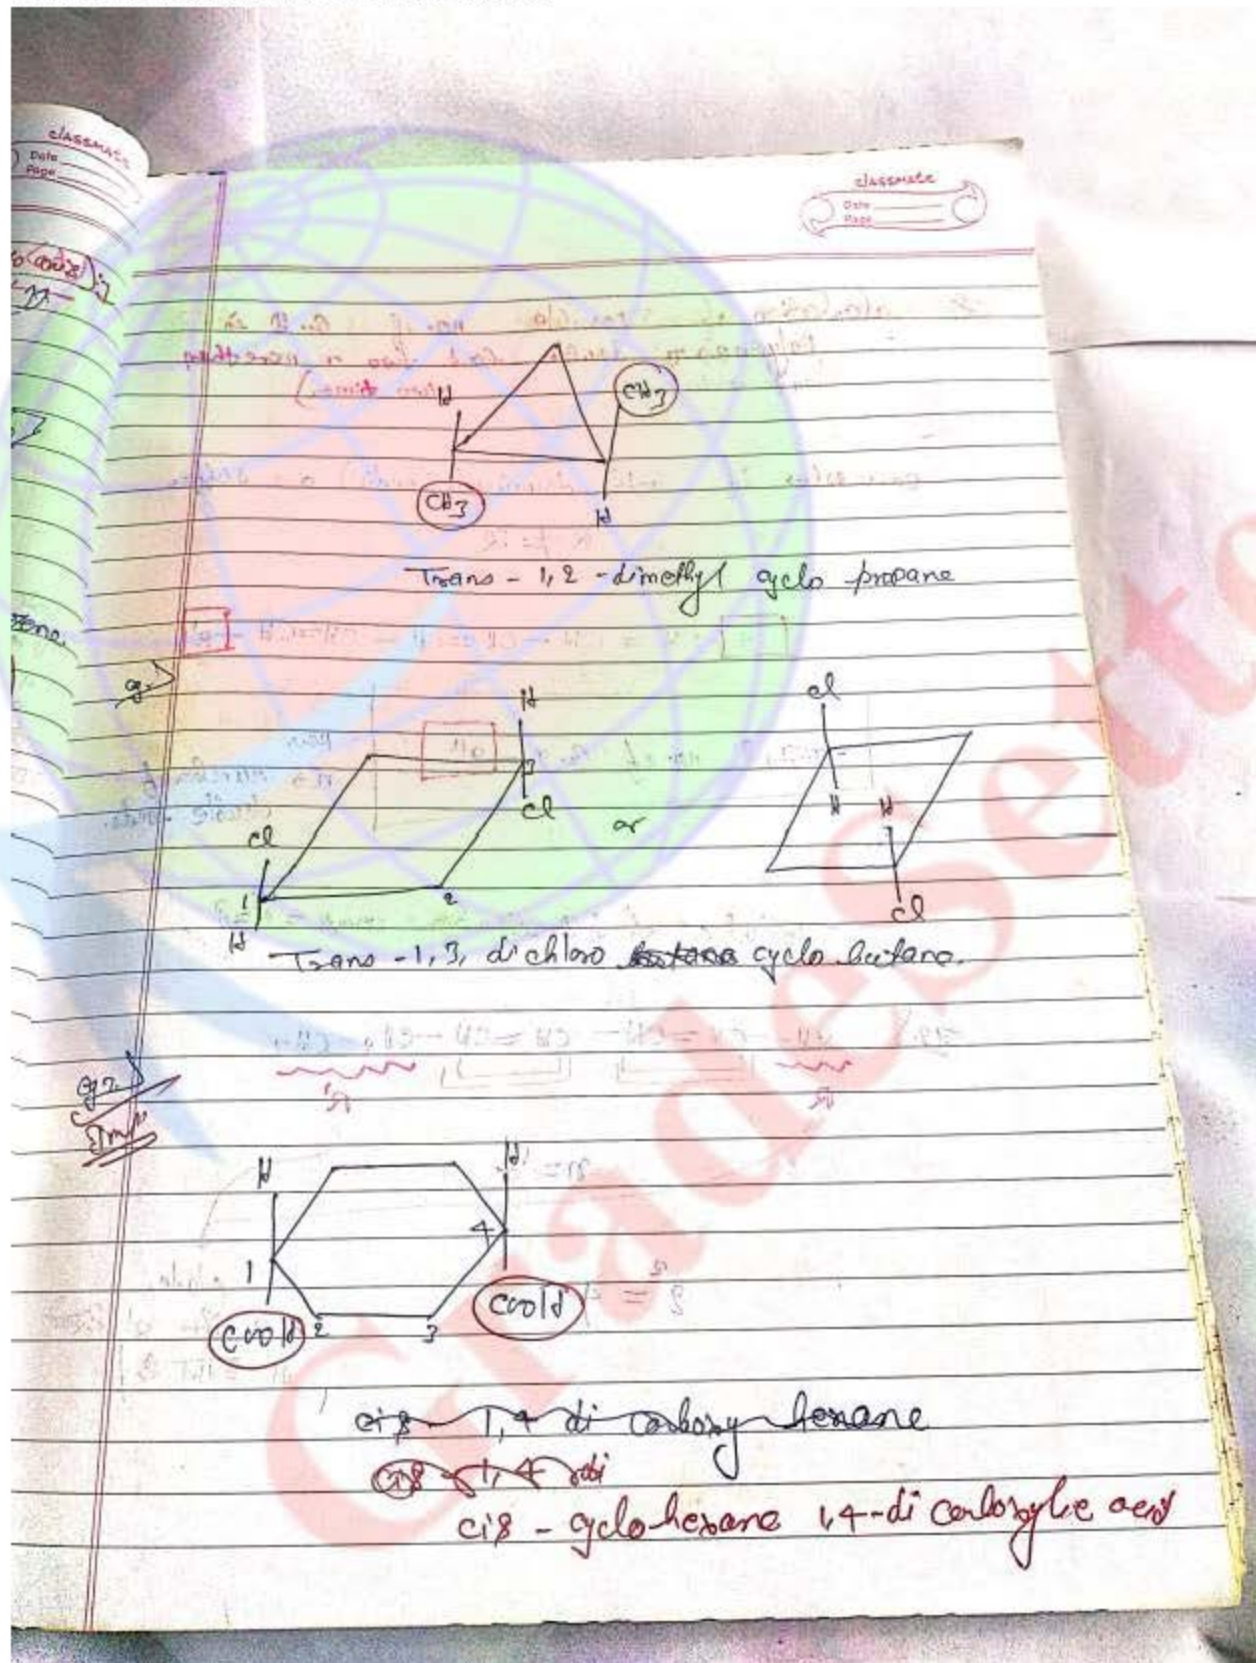 classmate
Date
Page
classmate
Date
Page
H
CH3
CH3
H
Trans - 1, 2 - dimethyl cyclo propane
eg.
H
3
Cl
Cl
1
2
H
or
Cl
H
H
Cl
Trans - 1, 3, dichloro cyclo butane.
eg 2.
H
H
4
1
COOH
COOH
2
3
cis - 1, 4 di carboxy hexane
cis - 1, 4 di
cis - cyclohexane 1,4-di carboxylic acid
GradeSetter